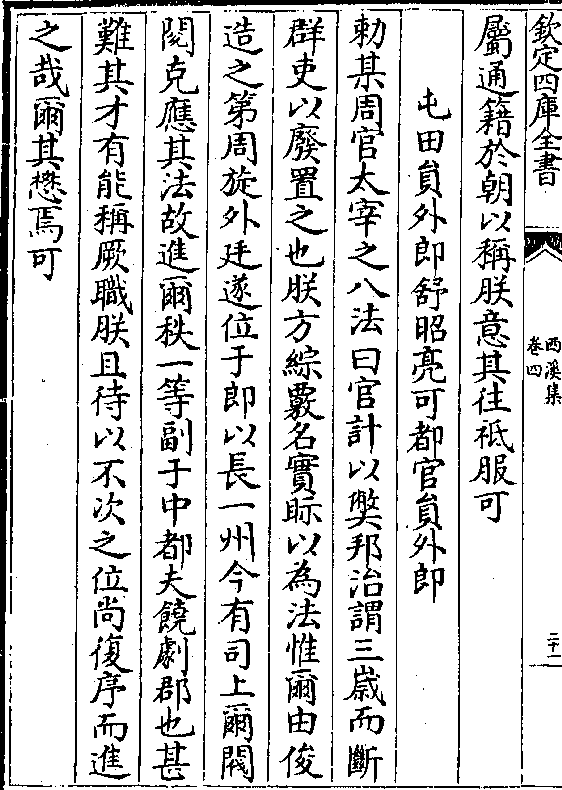 欽定四庫全書
西溪集
卷四
二十一
屬通籍於朝以稱朕意其往祗服可
屯田員外郎舒昭亮可都官員外郎
勅某周官太宰之八法曰官計以獘邦治謂三歲而斷
群吏以廢置之也朕方綜覈名實眎以為法惟爾由俊
造之第周旋外廷遂位于郎以長一州今有司上爾閥
閱克應其法故進爾秩一等副于中都夫饒劇郡也甚
難其才有能稱厥職朕且待以不次之位尚復序而進
之哉爾其懋焉可